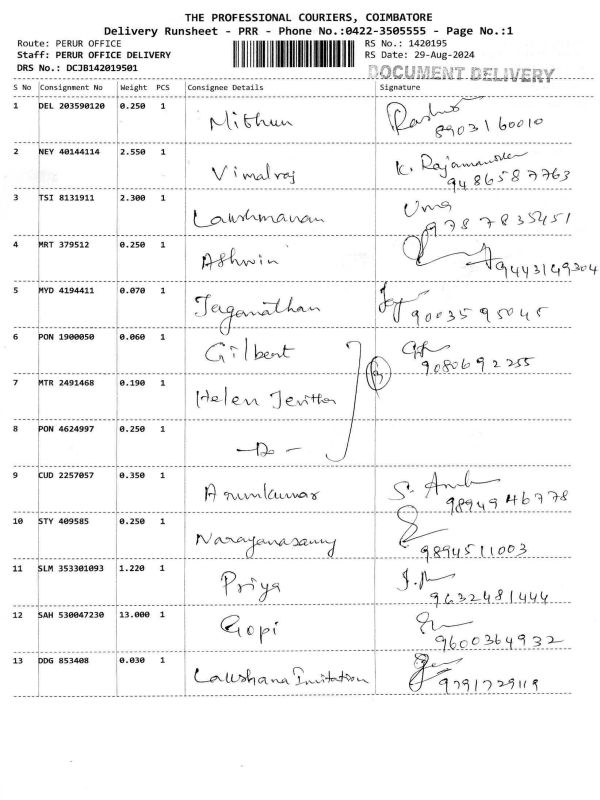 THE PROFESSIONAL COURIERS, COIMBATORE
Delivery Runsheet - PRR - Phone No.:0422-3505555 - Page No.:1
Route: PERUR OFFICE RS No.: 1420195
Staff: PERUR OFFICE DELIVERY RS Date: 29-Aug-2024
DRS No.: DCJB142019501 DOCUMENT DELIVERY
S No Consignment No Weight PCS Consignee Details Signature
1 DEL 203590120 0.250 1 Mithun
8903160010
2 NEY 40144114 2.550 1 Vimalraj K. Rajamanickam
9486587763
3 TSI 8131911 2.300 1 Lakshmanan Uma
9787835451
4 MRT 379512 0.250 1 Ashwin
9443149304
5 MYD 4194411 0.070 1 Jaganathan
9003595045
6 PON 1900050 0.060 1 Gilbert
9080692255
7 MTR 2491468 0.190 1 Helen Jenitha
8 PON 4624997 0.250 1 -Do-
9 CUD 2257057 0.350 1 Arunkumar
9894946778
10 STY 409585 0.250 1 Narayanasamy
9894511003
11 SLM 353301093 1.220 1 Priya
9632481444
12 SAH 530047230 13.000 1 Gopi
9600364932
13 DDG 853408 0.030 1 Lakshana Invitation
9791729119